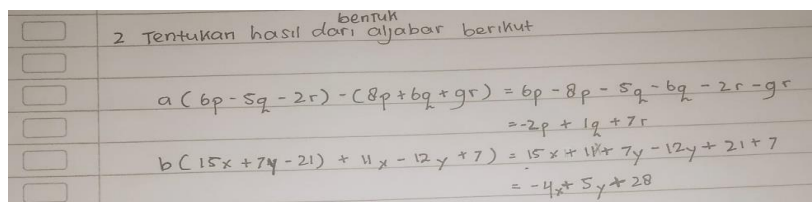 bentuk
2 Tentukan hasil dari aljabar berikut
a (6p - 5q - 2r) - (8p + 6q + 9r) = 6p - 8p - 5q - 6q - 2r - 9r
= -2p + 1q + 7r
b (15x + 7y - 21) + 11x - 12y + 7) = 15x + 11 + 7y - 12y + 21 + 7
= -4x + 5y + 28